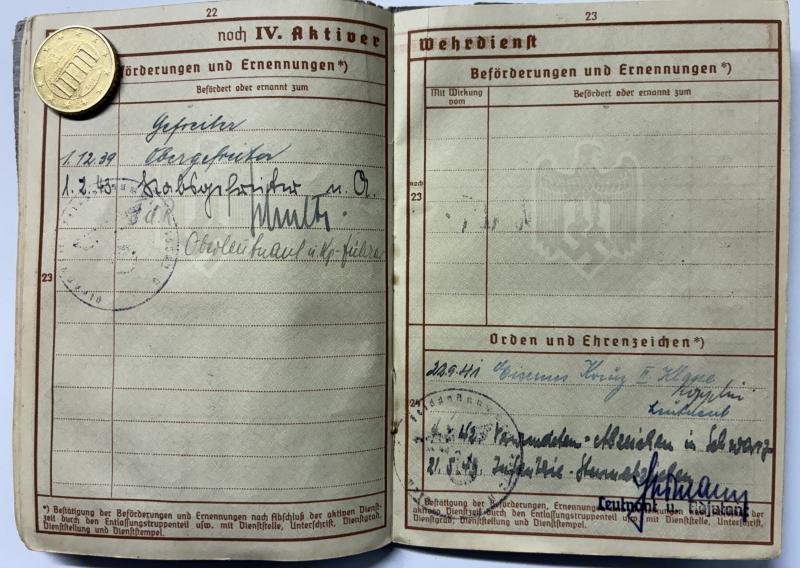 22
noch IV. Aktiver
Beförderungen und Ernennungen*)
Befördert oder ernannt zum
Gefreiter
1.12.39 Obergefreiter
1.2.43 Stabsgefreiter u.
Oberleutnant u. Kp.-Führer
23
*) Bestätigung der Beförderungen und Ernennungen nach Abschluß der aktiven Dienst-
zeit durch den Entlassungstruppenteil usw. mit Dienststelle, Unterschrift, Dienstgrad,
Dienststellung und Dienststempel.
23
Wehrdienst
Beförderungen und Ernennungen*)
Mit Wirkung vom
Befördert oder ernannt zum
noch
23
Orden und Ehrenzeichen*)
22.9.41 Eisernes Kreuz II Klasse
Leutnant
24
42 Verwundeten-Abzeichen in Schwarz
21.5.43 Infanterie-Sturmabzeichen
Leutnant u. Adjutant
*) Bestätigung der Beförderungen, Ernennungen der
aktiven Dienstzeit durch den Entlassungstruppenteil usw. mit Dienststelle, Unterschrift,
Dienstgrad, Dienststellung und Dienststempel.